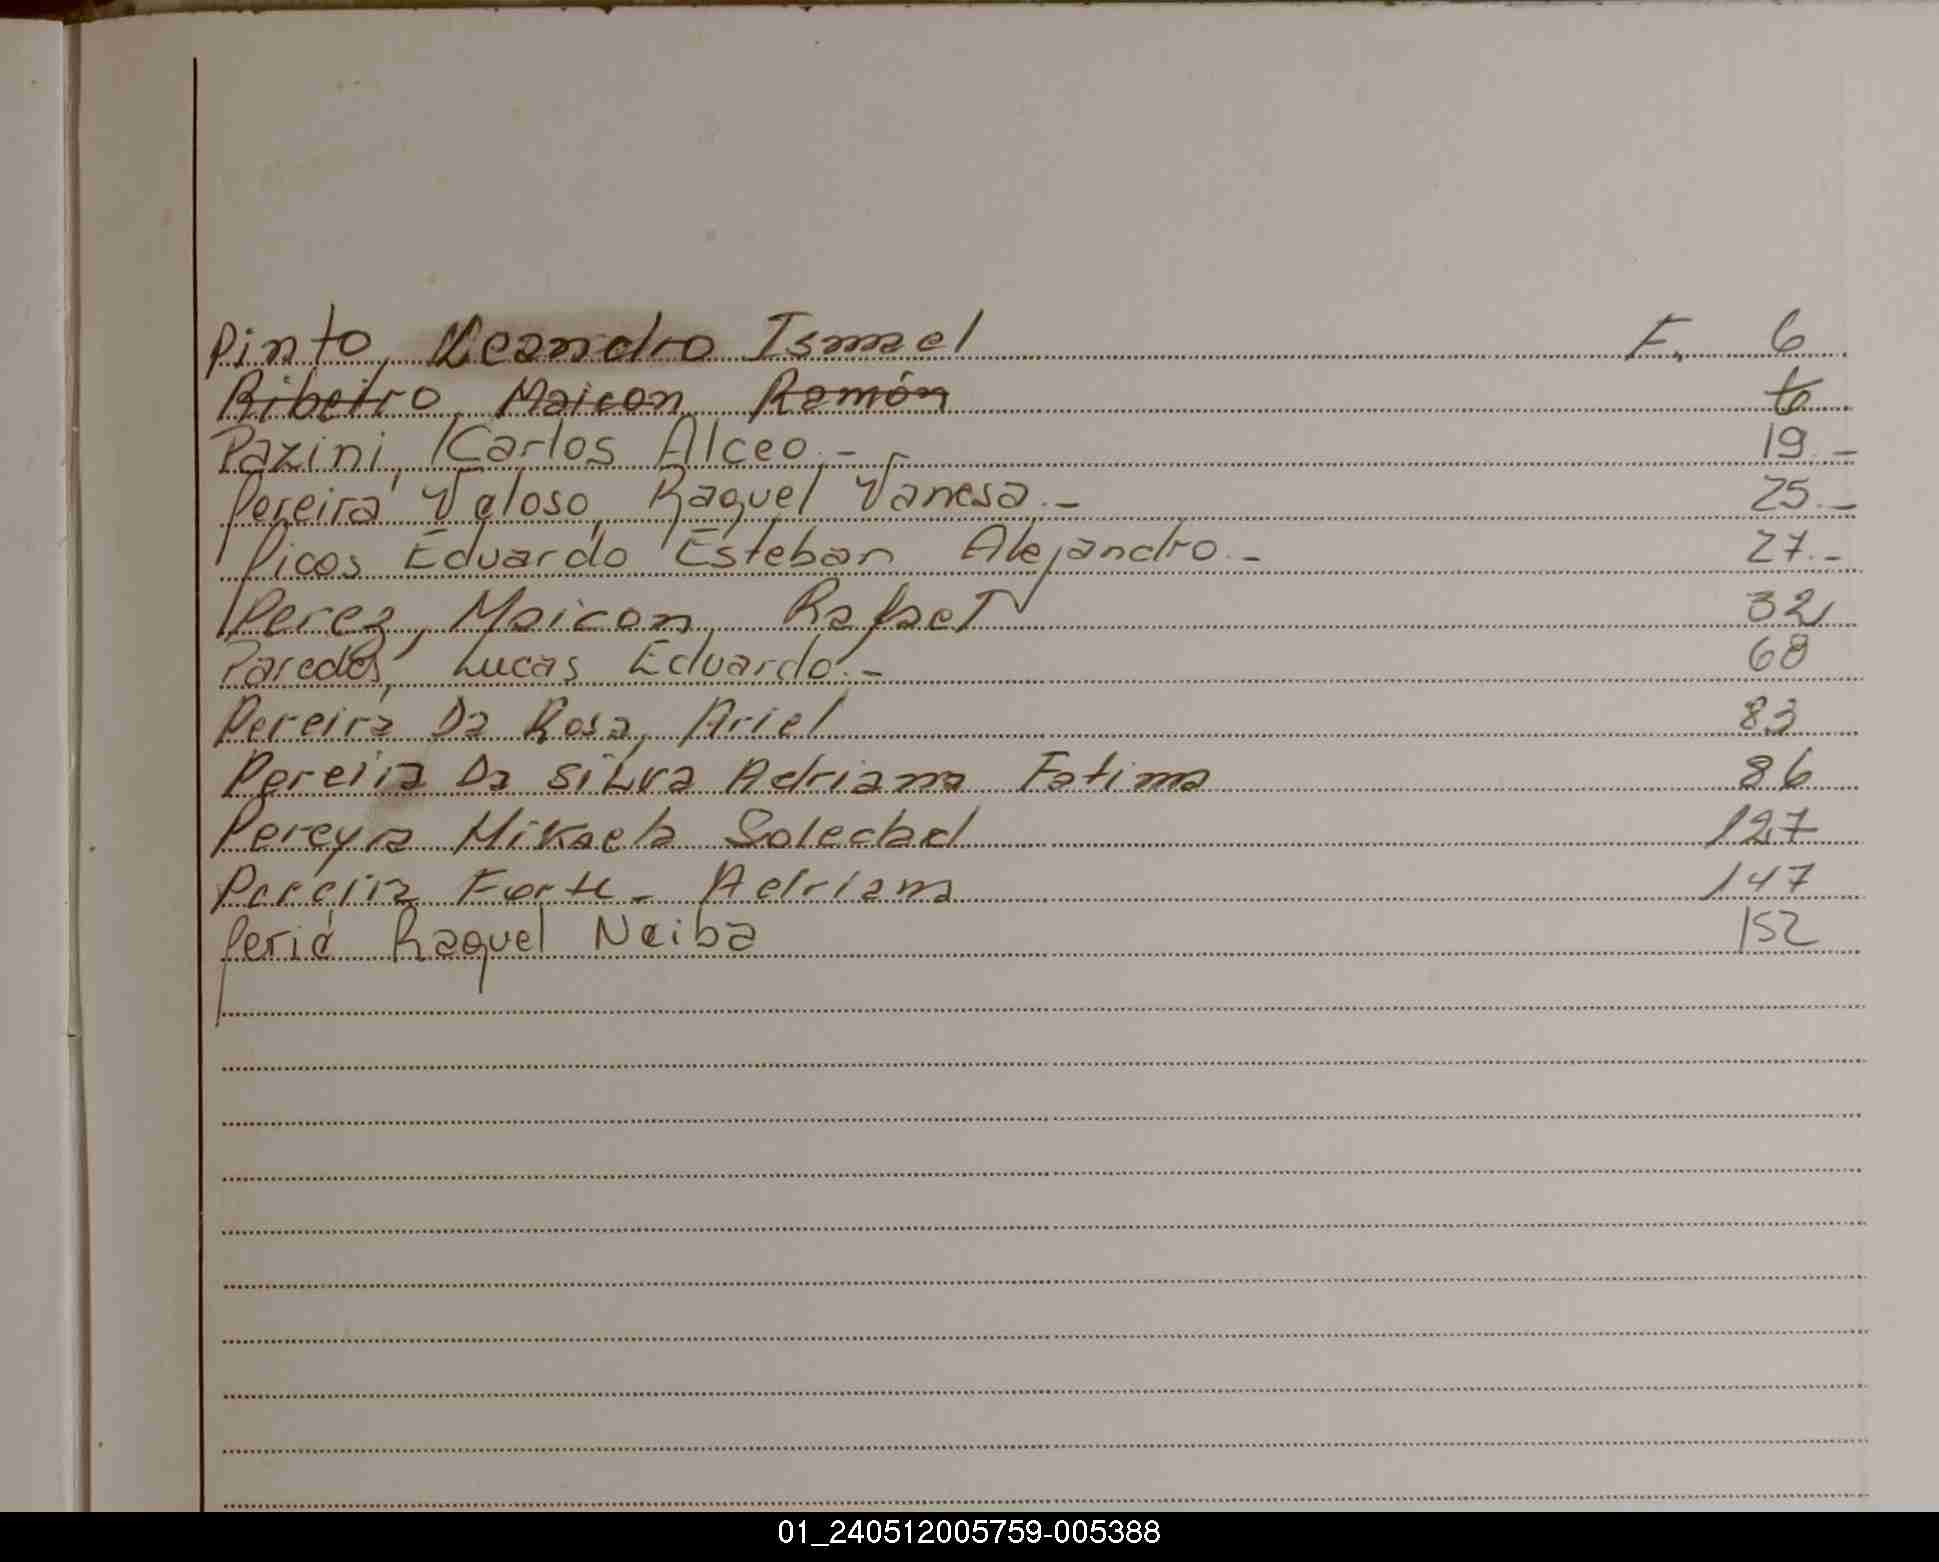 Pinto, Leandro Ismael F. 6
Ribeiro, Maicon Ramón 6
Pazini, Carlos Alceo.- 19.-
Pereira Veloso, Raquel Vanesa.- 25.-
Picos Eduardo Esteban Alejandro.- 27.-
Perez, Maicon, Rafael 32
Paredes, Lucas Eduardo.- 68
Pereira Da Rosa, Ariel 83
Pereira Da Silva Adriana Fatima 86
Pereyra Mikaela Soledad 127
Pereira Forte - Adriana 147
Perié Raquel Neiba 152
01_240512005759-005388